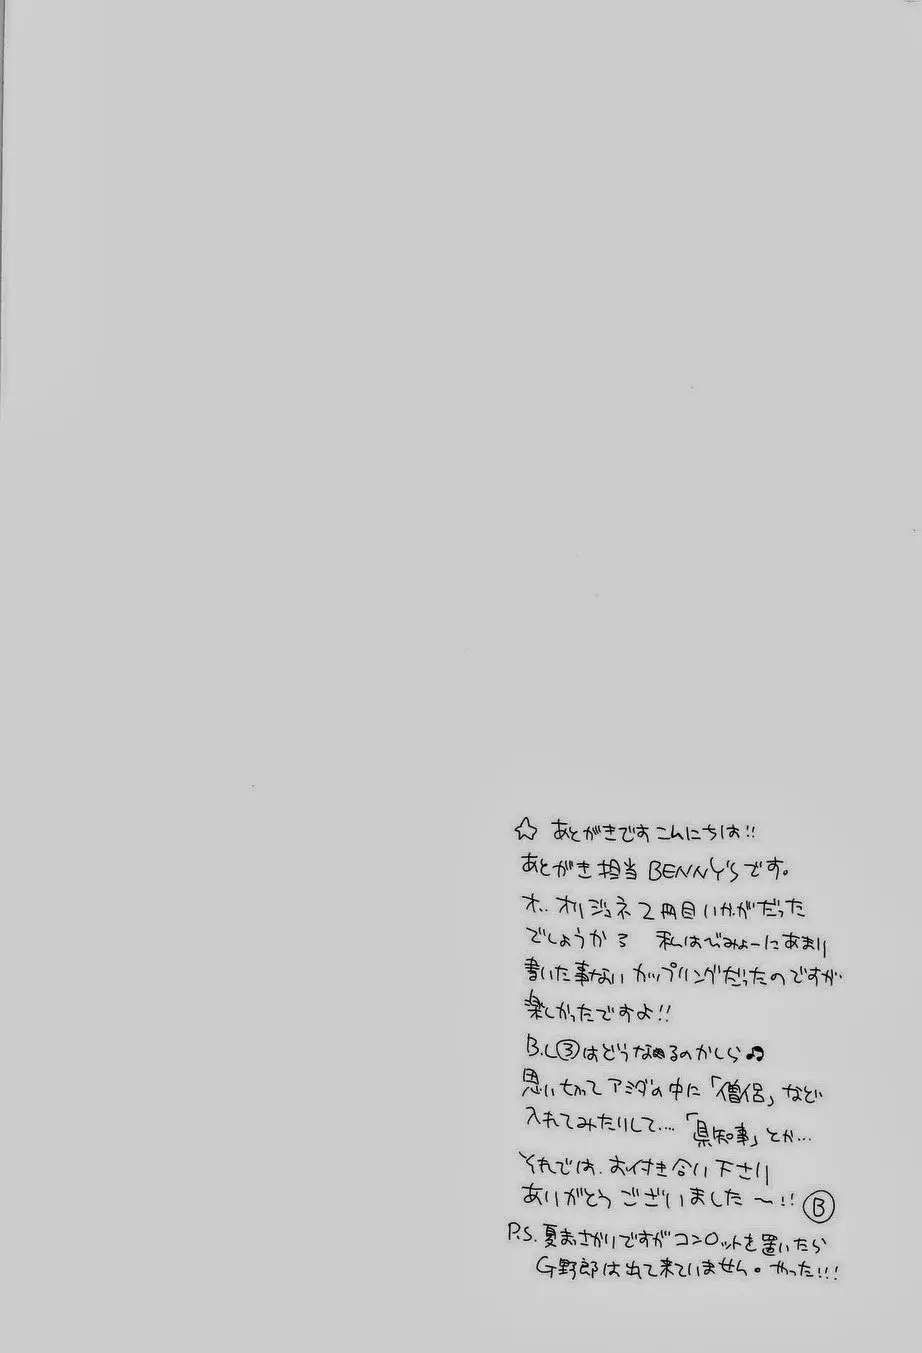 ☆ あとがきです こんにちは!!
あとがき担当 BENNY'Sです。
オ.. オリジュネ2冊目いかがだった
でしょうか? 私はびみょーにあまり
書いた事ないカップリングだったのですが
楽しかったですよ!!
B.L③はどうなるのかしら♫
思い切ってアミダの中に「僧侶」など
入れてみたりして…「県知事」とか…
それでは、お付き合い下さり
ありがとうございました〜!! Ⓑ
P.S. 夏まっさかりですがコンロットを置いたら
G野郎は出て来ていません。やった!!!